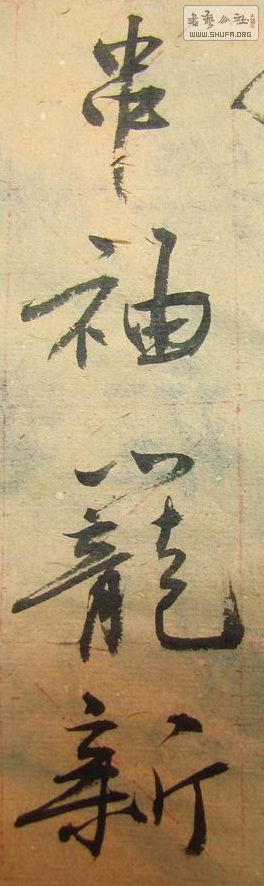 袖
籠
新
書藝公社
WWW.SHUFA.ORG